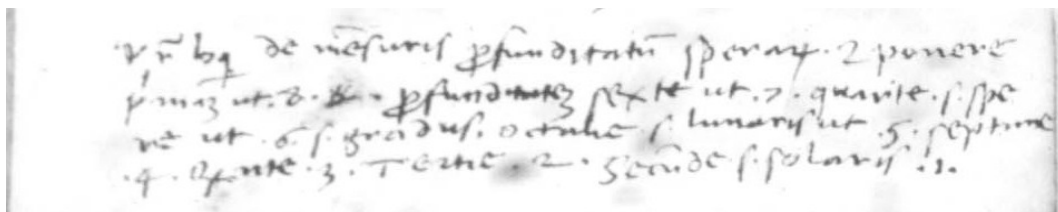 de mēsuris ꝓfunditatū sperarꝫ · 2 ponere
pͥmaꝫ ut · 8 · ꝓfunditateꝫ sexte ut · 7 · quarte · s · spe
re ut · 6 · s · gradus · octaue s · lunaris ut · 5 · septime
· 4 · Qͥnte · 3 · Tertie · 2 · Secūde s · solaris · 1 ·